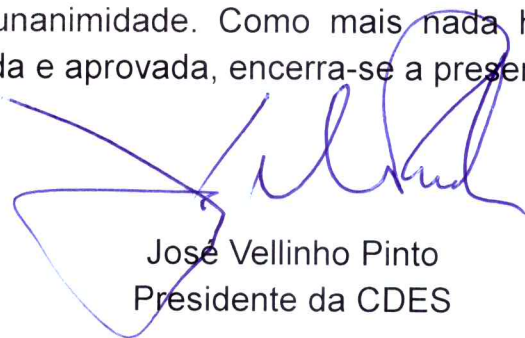 unanimidade. Como mais nada
da e aprovada, encerra-se a
José Vellinho Pinto
Presidente da CDES